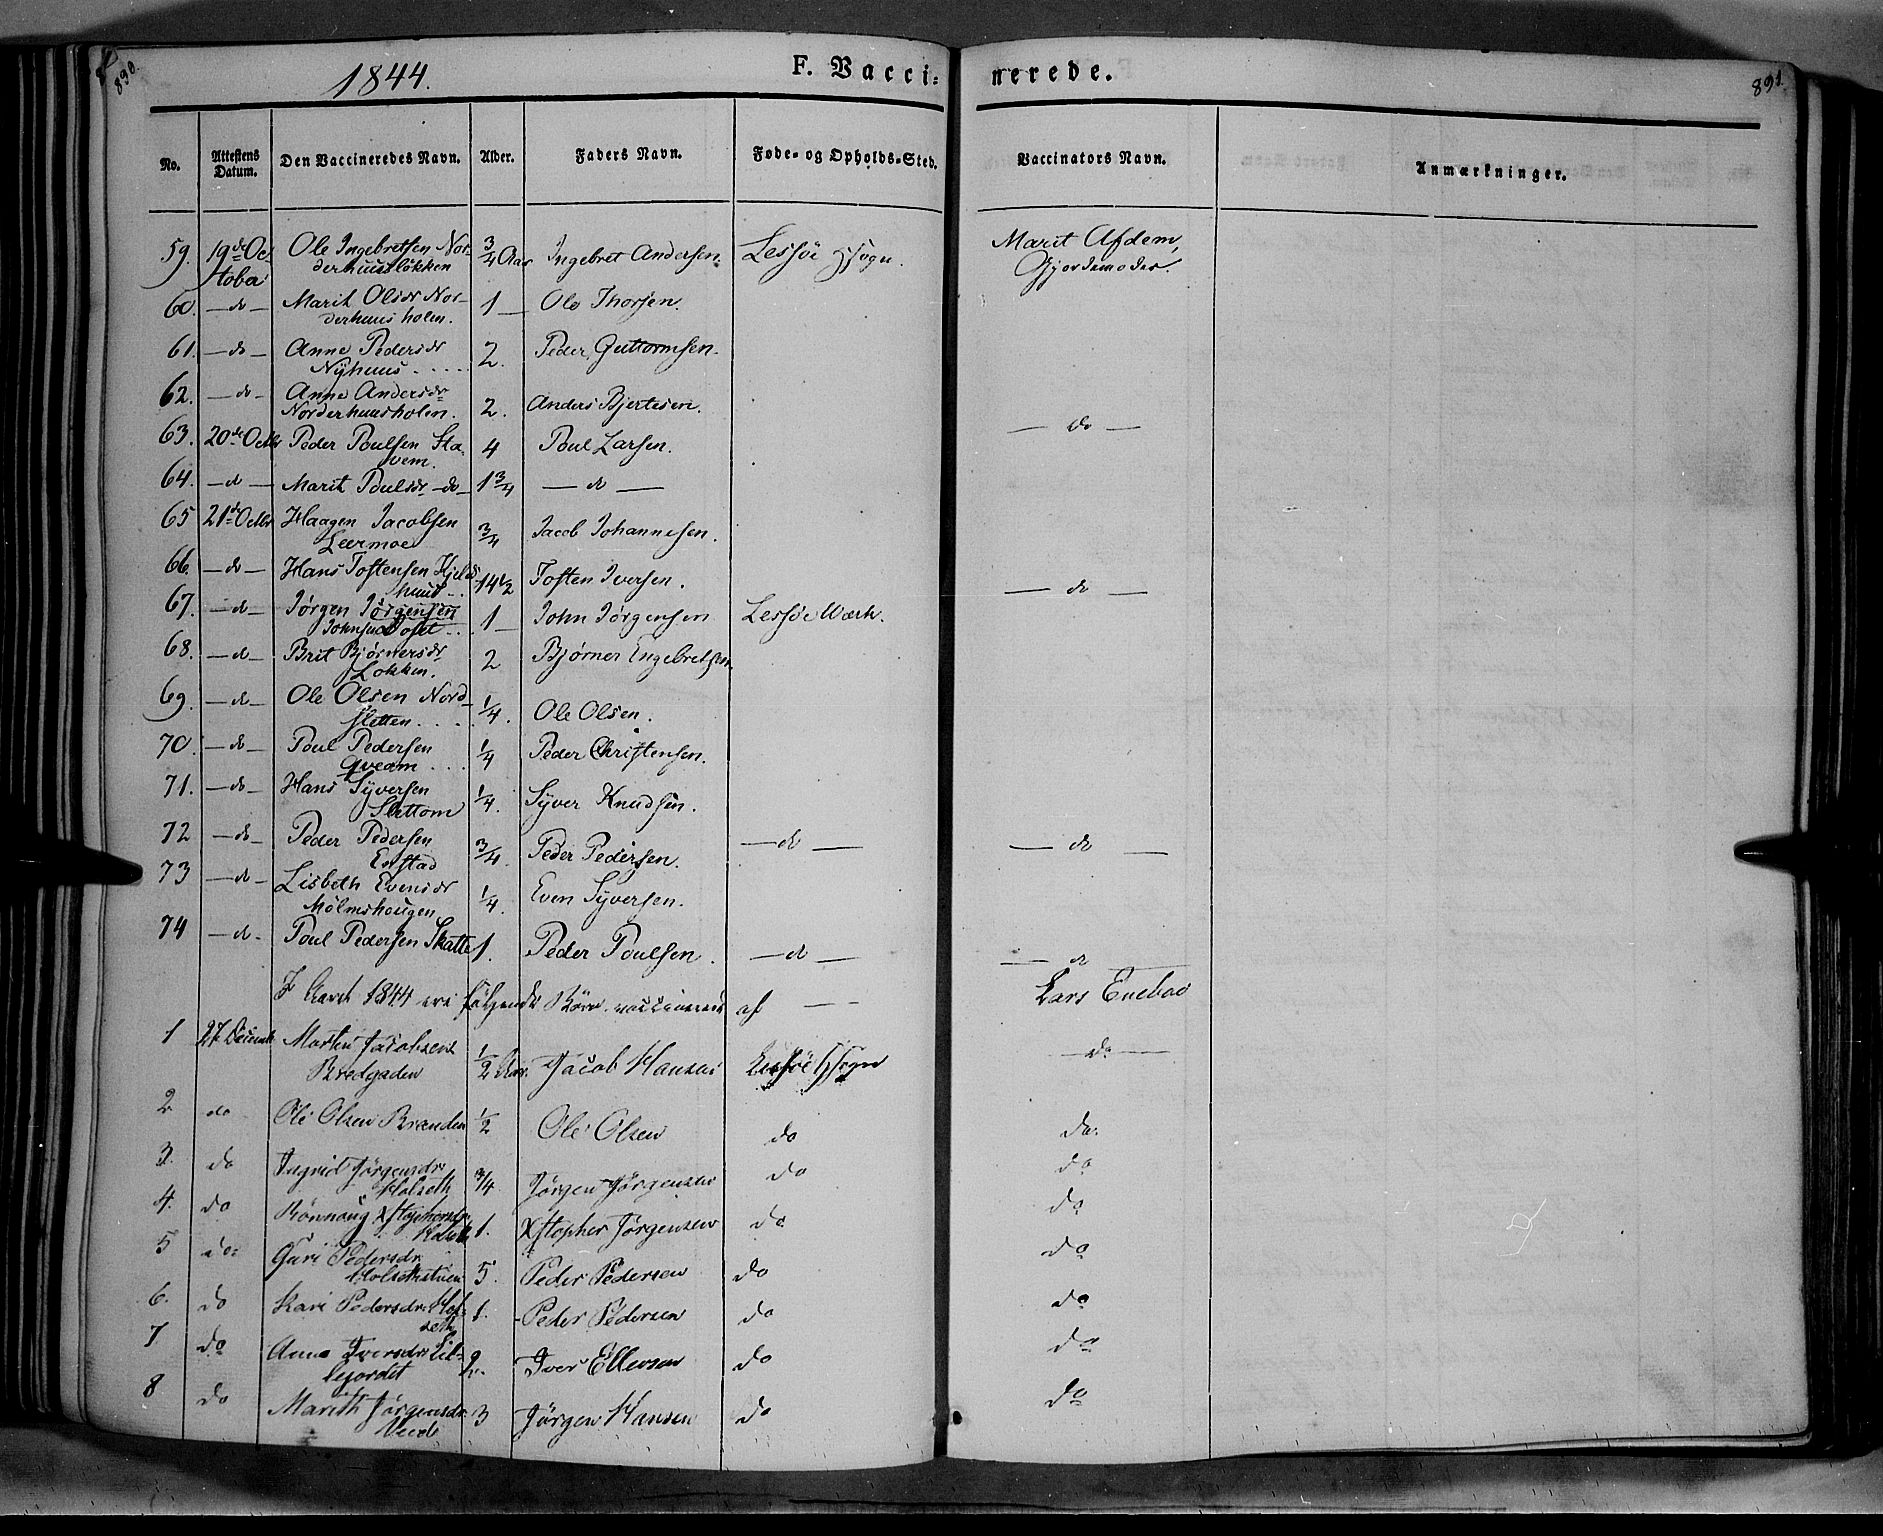 890.
1844.
F. Vacci-
nerede.
891
No.
Attestens Datum.
Den Vaccineredes Navn.
Alder.
Faders Navn.
Føde- og Opholds-Sted.
Vaccinators Navn.
Anmærkninger.
59. 19de Oc- Ole Ingebretsen Nor- 3/4 Aar Ingebret Andersen. Lessøe Hsogn. Marit Afdem,
toba derhuusløkken Gjordemoder.
60. — do — Marit Olsdr Nor- 1 — Ole Thorsen.
derhuusholen.
61. — do — Anne Pedersdr 2. Peder Guttormsen.
Nyhuus . . . .
62. — do — Anne Andersdr 2. Anders Bjertesen.
Norderhuusholen.
63. 20de Octbr Peder Poulsen Sta- 4 Poul Larsen. — do —
vem.
64. — d — Marit Poulsdr — do — 1 3/4 — d —
65 21de Octbr Haagen Jacobsen 3/4 Jacob Johannesen.
Leermoe
66. — do — Hans Tostensen Kjels- 14 1/2 Tosten Iversen. — do —
huus . .
67. — do — Jørgen Jørgensen 1 — John Jørgensen Lessøe Værk.
Johnsen
68. — d — Brit Bjørnersdr 2 Bjørner Engebretsen
Løkken.
69. — do — Ole Olsen Nord- 1/4. Ole Olsen.
sletten . . . .
70. — do — Poul Pedersen 1/4 Peder Christensen.
Qveam . . .
71. — do — Hans Syversen 1/4. Syver Knudsen.
Slettom
72 — do — Peder Pedersen 3/4. Peder Pedersen. — do — — do —
Enstad
73 — do — Lisbeth Evensdr 1/4. Even Syversen.
Mølmshougen
74 — d — Poul Pedersen Skatte 1. Peder Poulsen. — d — — d —
I Aaret 1844 ere følgende Børn vaccinerede af — — Lars Enebo
1 27 Decemb Morten Jacobsen 1/2 Aar. Jacob Hansen Lessøe Hsogn — do —
Bredgaden
2 do Ole Olsen Brænden 1/2 Ole Olsen do do.
3. do Ingrid Jørgensdr. 3/4 Jørgen Jørgensen do do
Holseth
4. do Rønnaug Xstophersdr 1. Xstopher Jørgensen do do
Holseth
5 do Guri Pedersdr. 5. Peder Pedersen do do
Holsethstuen
6. do Kari Pedersdr. Hol- 1. Peder Pedersen do do
seth
7 do Anne Iversdr. Lil- 2. Iver Ellensen do do
lejordet
8 do Marith Jørgensdr. 3 Jørgen Hansen do do